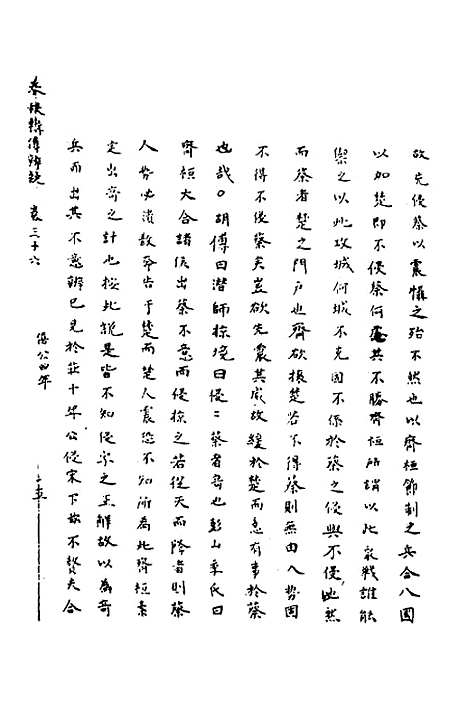 故先侵蔡以震懾之殆不然也以齊桓節制之兵合八國
以加楚即不侵蔡何憂其不勝齊桓所謂以此眾戰誰能
禦之以此攻城何城不克固不係於蔡之侵與不侵也然
而蔡者楚之門戶也齊欲振楚若不得蔡則無由入勢固
不得不侵蔡矣豈欲先震其威故緩於楚而急有事於蔡
也哉○胡傳曰潛師掠境曰侵二蔡者奇也彭山季氏曰
齊桓大合諸侯出蔡不意而侵掠之若從天而降者則蔡
人勢必潰散奔告于楚而楚人震恐不知所為此齊桓素
定出奇之計也按此說是皆不知侵字之正解故以為奇
兵而出其不意辨已見於莊十年公侵宋下茲不贅夫合
春秋輯傳辨疑 卷三十六
僖公四年